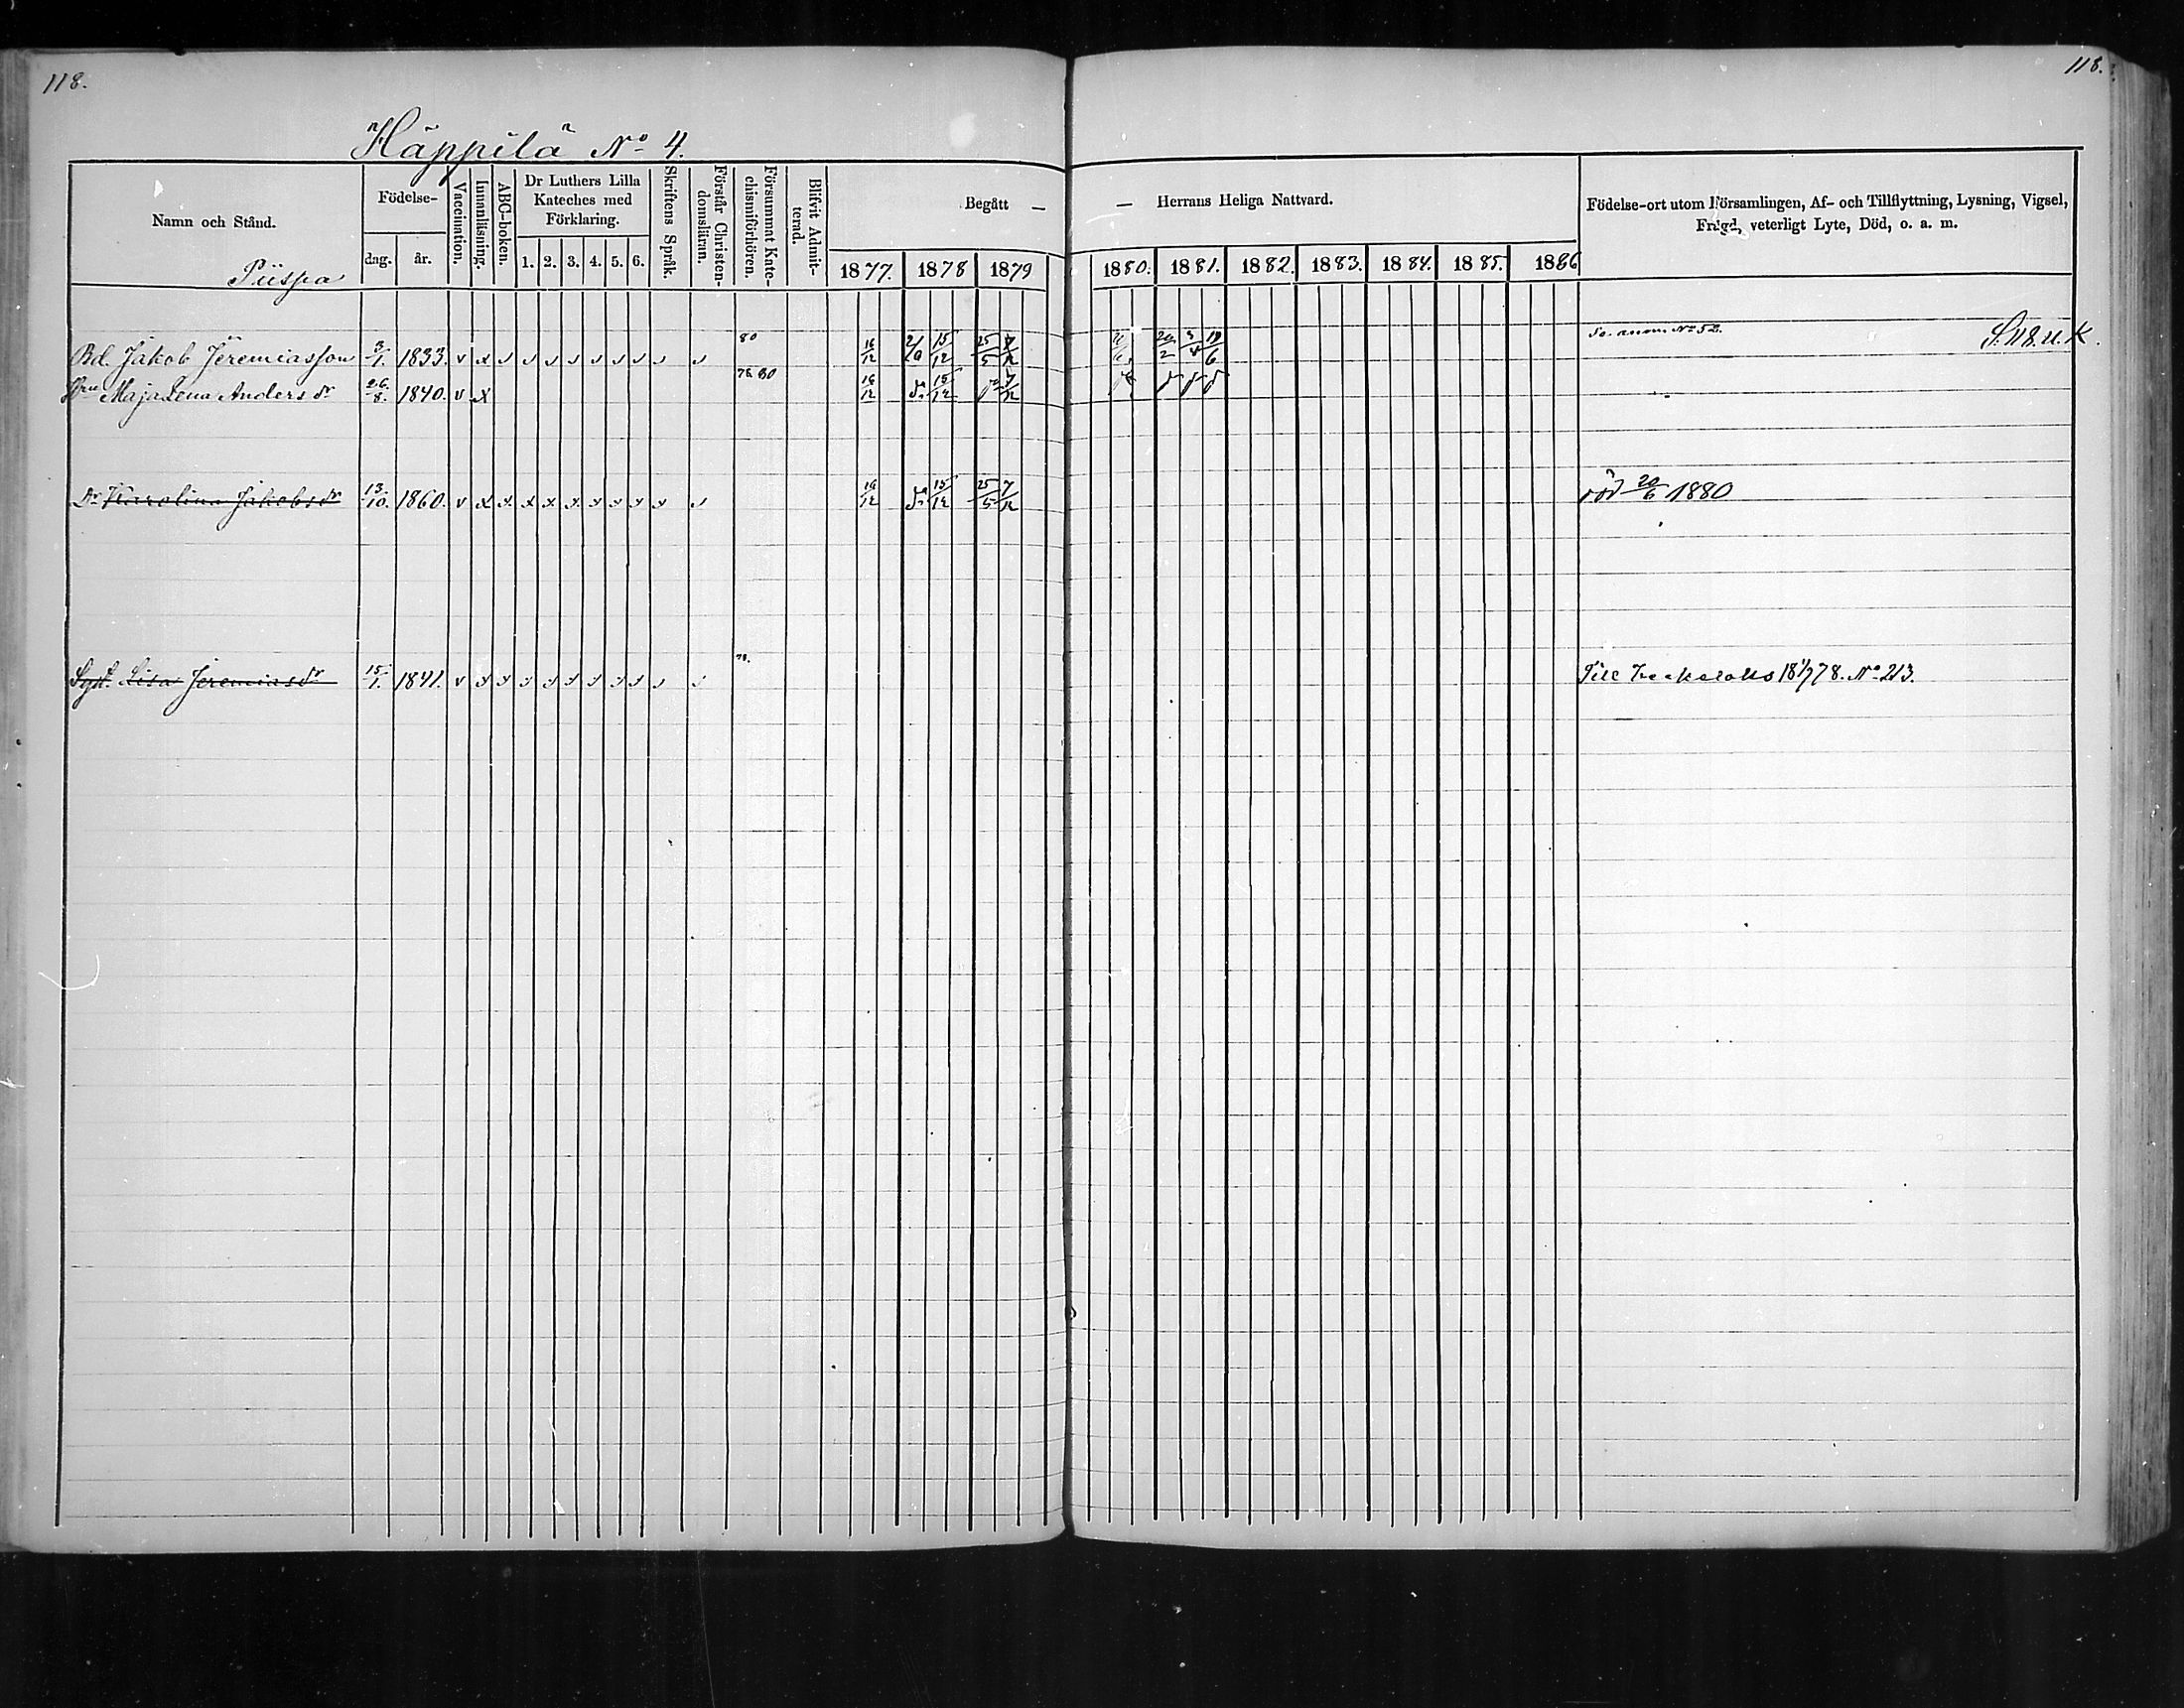 118.
118.
Häppilä No 4.
Namn och Stånd.
Födelse-
dag.
år.
Vaccination.
Innanläsning.
ABC-boken.
Dr Luthers Lilla
Kateches med
Förklaring.
1. 2. 3. 4. 5. 6.
Skriftens Språk.
Förstår Christen-
domsläran.
Försummat Kate-
chismiförhören.
Blifvit Admit-
terad.
Begått —
— Herrans Heliga Nattvard.
1877. 1878 1879 1880. 1881. 1882. 1883. 1884. 1885. 1886
Födelse-ort utom Församlingen, Af- och Tillflyttning, Lysning, Vigsel,
Frägd, veterligt Lyte, Död, o. a. m.
Piispa
Bd. Jakob Jeremiasson 3/1. 1833. v x 80 16/12 15/12 25/5 7/12 20/2 3/4 19/6 No 52. S. 118. u. K.
Maja Lena Anders dr 26/8. 1840. v x 78 80 16/12 15/12 7/12
Dr Karolina Jakobs dr 13/10. 1860. v x x x x x 16/12 15/12 25/5 7/12 död 20/6 1880
Lisa Jeremias dr 15/1. 1841. v 78. Till 18 1/7 78. No 213.